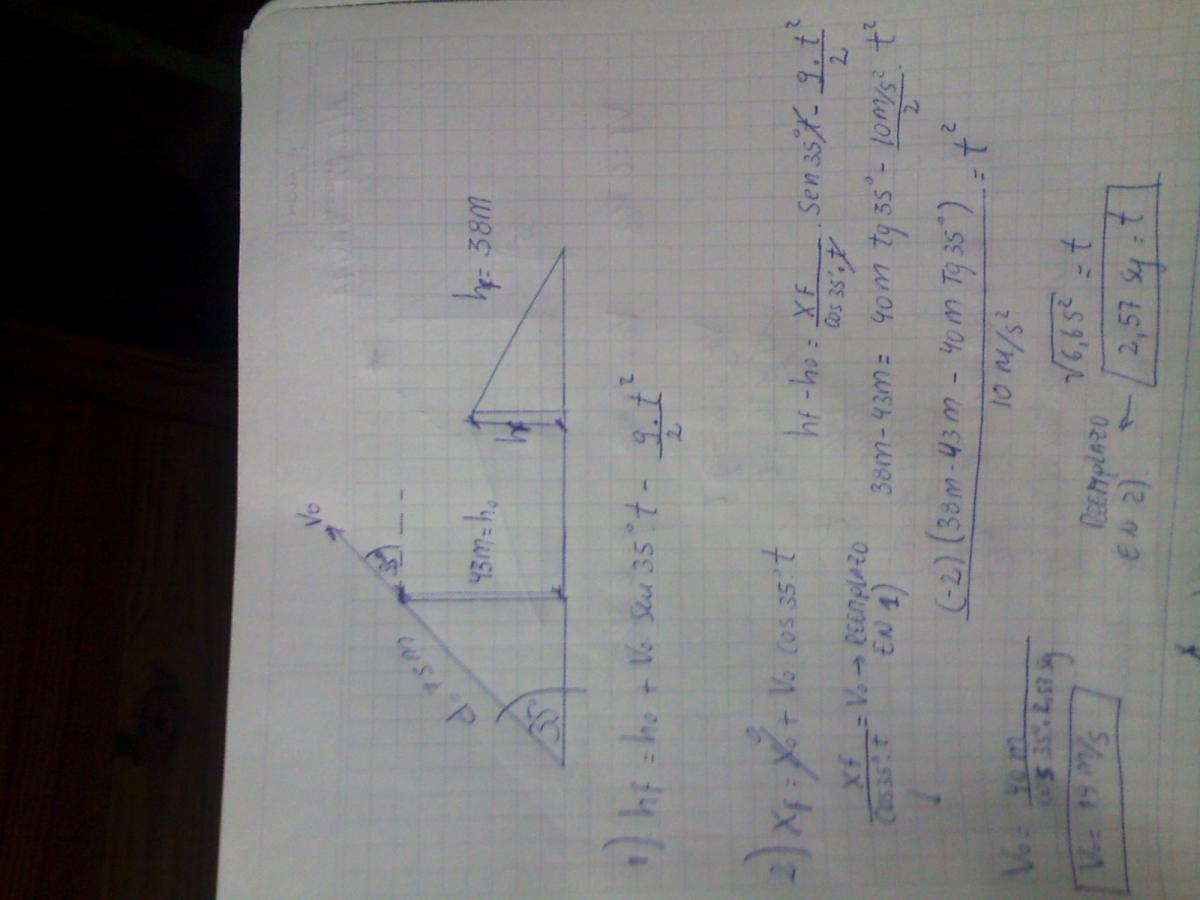 V₀
35°
d= 75m
43m=h₀
hf
hf= 38m
35°
1) hf = h₀ + V₀ Sen 35°.t - g.t²/2
2) xf = x₀ + V₀ cos 35°.t
0
xf/cos35°.t = V₀ → REEMPLAZO EN 1)
hf-h₀ = xf/cos35°.t . Sen35°.t - g.t²/2
38m-43m= 40m tg35° - 10m/s²/2 . t²
(-2)(38m-43m-40m Tg35°)/10 m/s² = t²
√6,6s² = t
2,57 sg = t
REEMPLAZO EN 2)
V₀ = 40m/cos 35°.2,57 sg
V₀ = 19 m/s